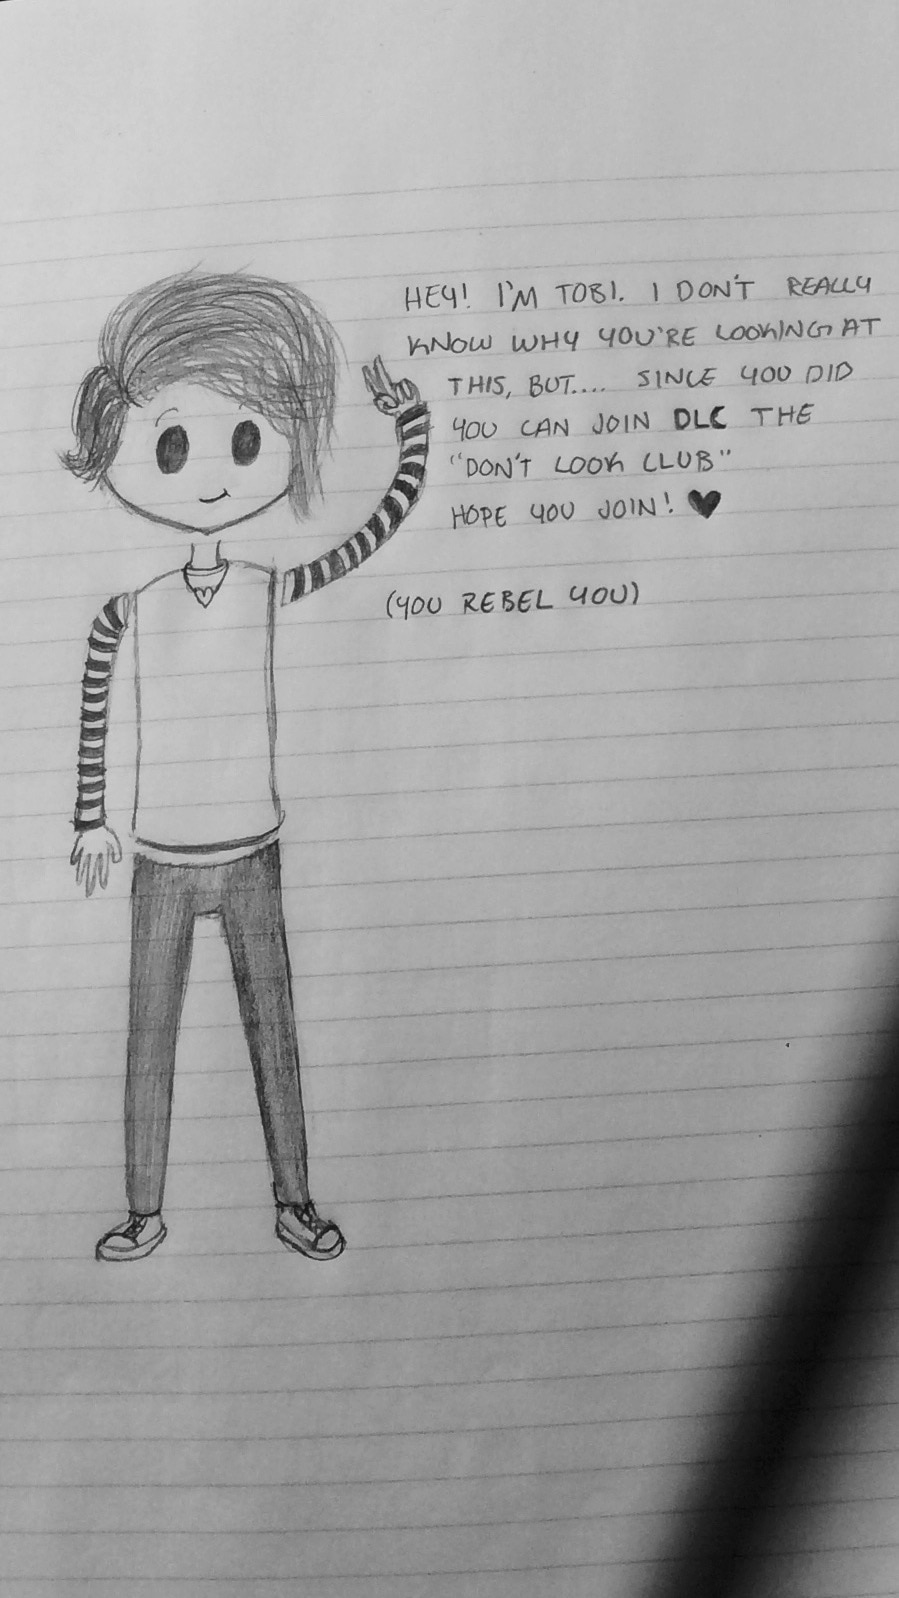 HEY! I'M TOBI. I DON'T REALLY
KNOW WHY YOU'RE LOOKING AT
THIS, BUT.... SINCE YOU DID
YOU CAN JOIN DLC THE
"DON'T LOOK CLUB"
HOPE YOU JOIN! ♥
(YOU REBEL YOU)